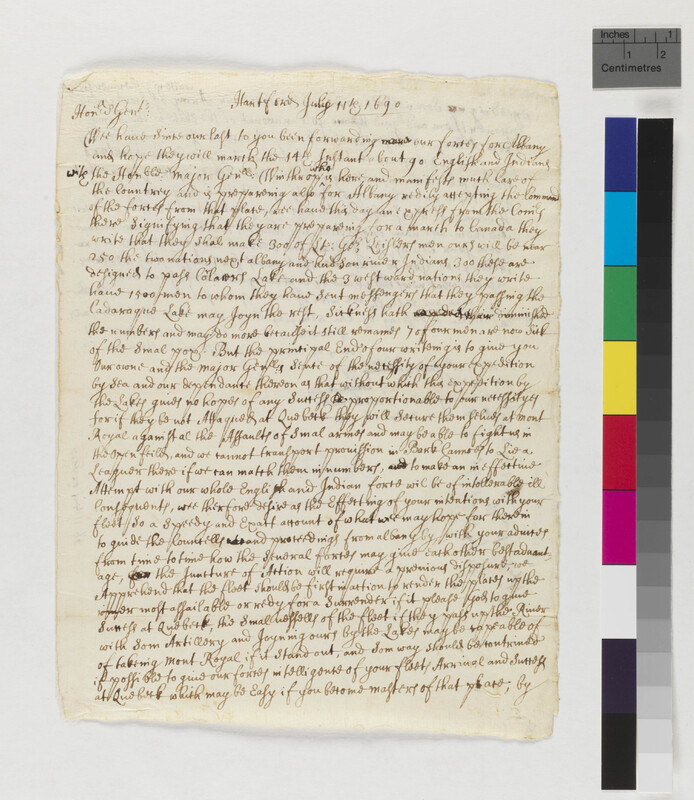 Inches 1
1 2
Centimetres
Hartford July 11th 1690
Honrd Gent:
Wee have since our last to you been forwarding our forces for Albany
and hope they will march the 14th Instant about 90 English and Indians
with the Honble Major Genll: Winthrop who is here and manifests much Care of
the Countrey and is prepareing also for Albany redily accepting the Command
of the forces from that place, wee have this day an express from the Comrs
there signifying that they are prepareing for a march to Canada they
write that they shal make 300 of Lt: Govr Leislers men ours will be near
250 the two nations next albany and hudson river Indians 300 these are
designed to pass Colaers Lake and the 3 westward nations they write
have 1500 men to whom they have sent messengers that they passing the
Cadaroque Lake may Joyn the rest, Sickness hath diminished
the numbers and may do more becaus it still remaines 7 of our men are now sick
of the Smal pox. But the principal End of our writeing is to give you
our owne and the major Genlls sense of the necessity of your expedition
by Sea and our dependance thereon as that without which this expedition by
The Lakes gives no hopes of any Success proportionable to our necessityes
for if they be not Attaqued at Quebeck they will secure themselves at Mont
Royal against al the Assaults of Smal armes and may be able to fight us in
the open feild, and we cannot transport provission in Bark Cannoes to Lie a
Leaguer there if we can match them in numbers, and to make an in effective
Attempt with our whole English and Indian force wil be of intollerable ill
Consequence, wee therfore desire as the Effecting of your intentions with your
fleet so a speedy and Exact account of what we may hope for therein
to guide the Councells and proceedings from albany by, with your advices
from time to time how the several forces may give Each other best advant
age, the Juncture of Action will require a previous disposure, we
Apprehend that the fleet should be first in action to render the places up the
river most assailable or redy for a Surrender if it please god to give
Success at Quebeck, the Small vessells of the fleet if they pass up the River
with som Artillery and Joyning ours by the Lakes may be capeable of
of takeing Mont Royal if it stand out, and som way should be contrived
if possible to give our forces intelligence of your fleets Arrival and Success
at Quebeck which may be Easy if you become masters of that place, by